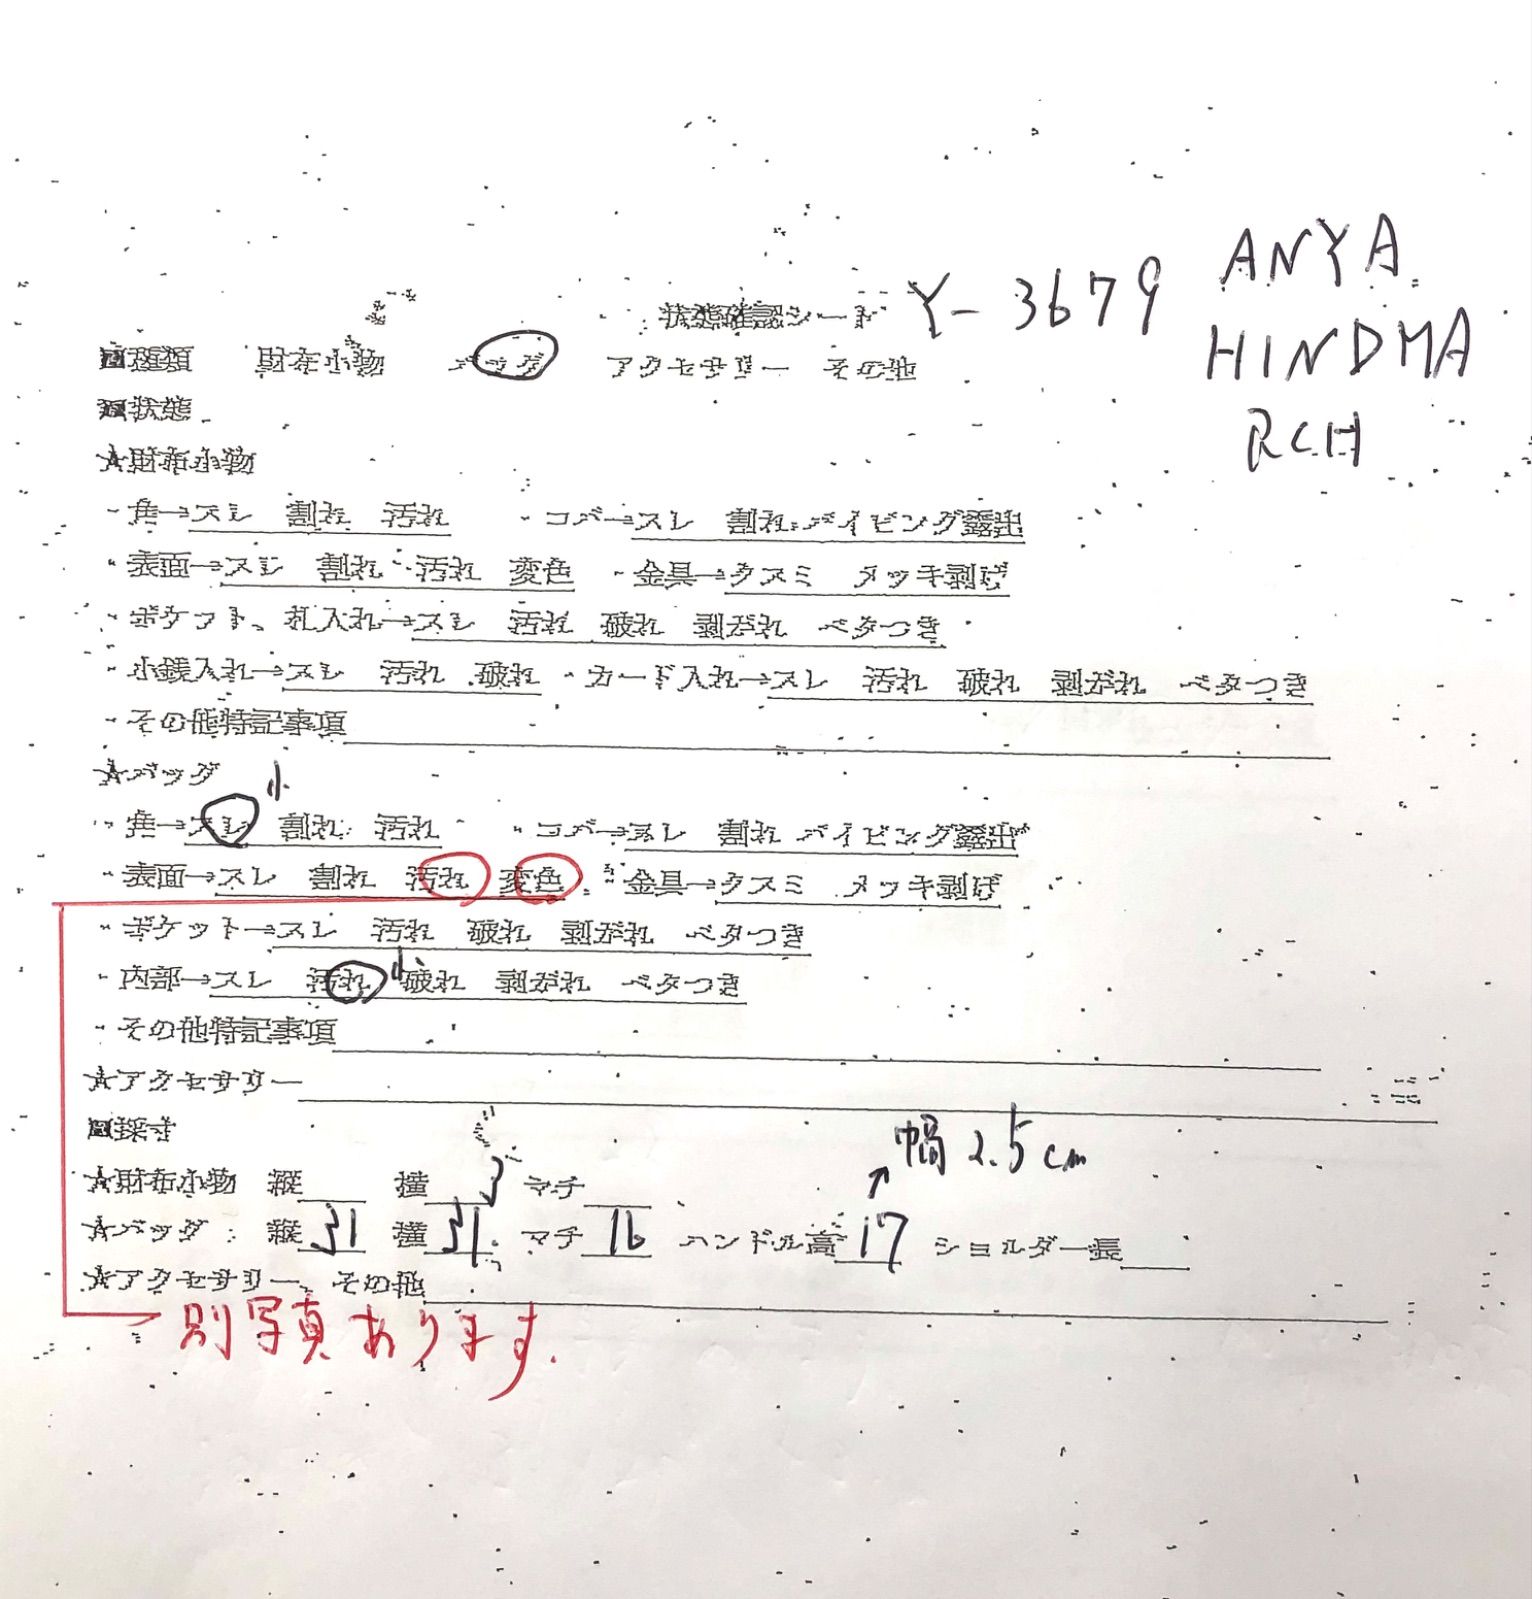 状態確認シート Y-3679 ANYA
HINDMA
RCH
■種類 財布小物 バッグ アクセサリー その他
■状態
★財布小物
・角→スレ 割れ 汚れ ・コバ→スレ 割れ パイピング露出
・表面→スレ 割れ 汚れ 変色 ・金具→クスミ メッキ剥げ
・ポケット、札入れ→スレ 汚れ 破れ 剥がれ ベタつき
・小銭入れ→スレ 汚れ 破れ ・カード入れ→スレ 汚れ 破れ 剥がれ ベタつき
・その他特記事項
★バッグ
小
・角→スレ 割れ 汚れ ・コバ→スレ 割れ パイピング露出
・表面→スレ 割れ 汚れ 変色 ・金具→クスミ メッキ剥げ
・ポケット→スレ 汚れ 破れ 剥がれ ベタつき
・内部→スレ 汚れ 小 破れ 剥がれ ベタつき
・その他特記事項
★アクセサリー
■採寸
幅 2.5cm
★財布小物 縦 横 マチ
★バッグ 縦31 横31 マチ16 ハンドル高17 ショルダー長
★アクセサリー、その他
別写真あります.